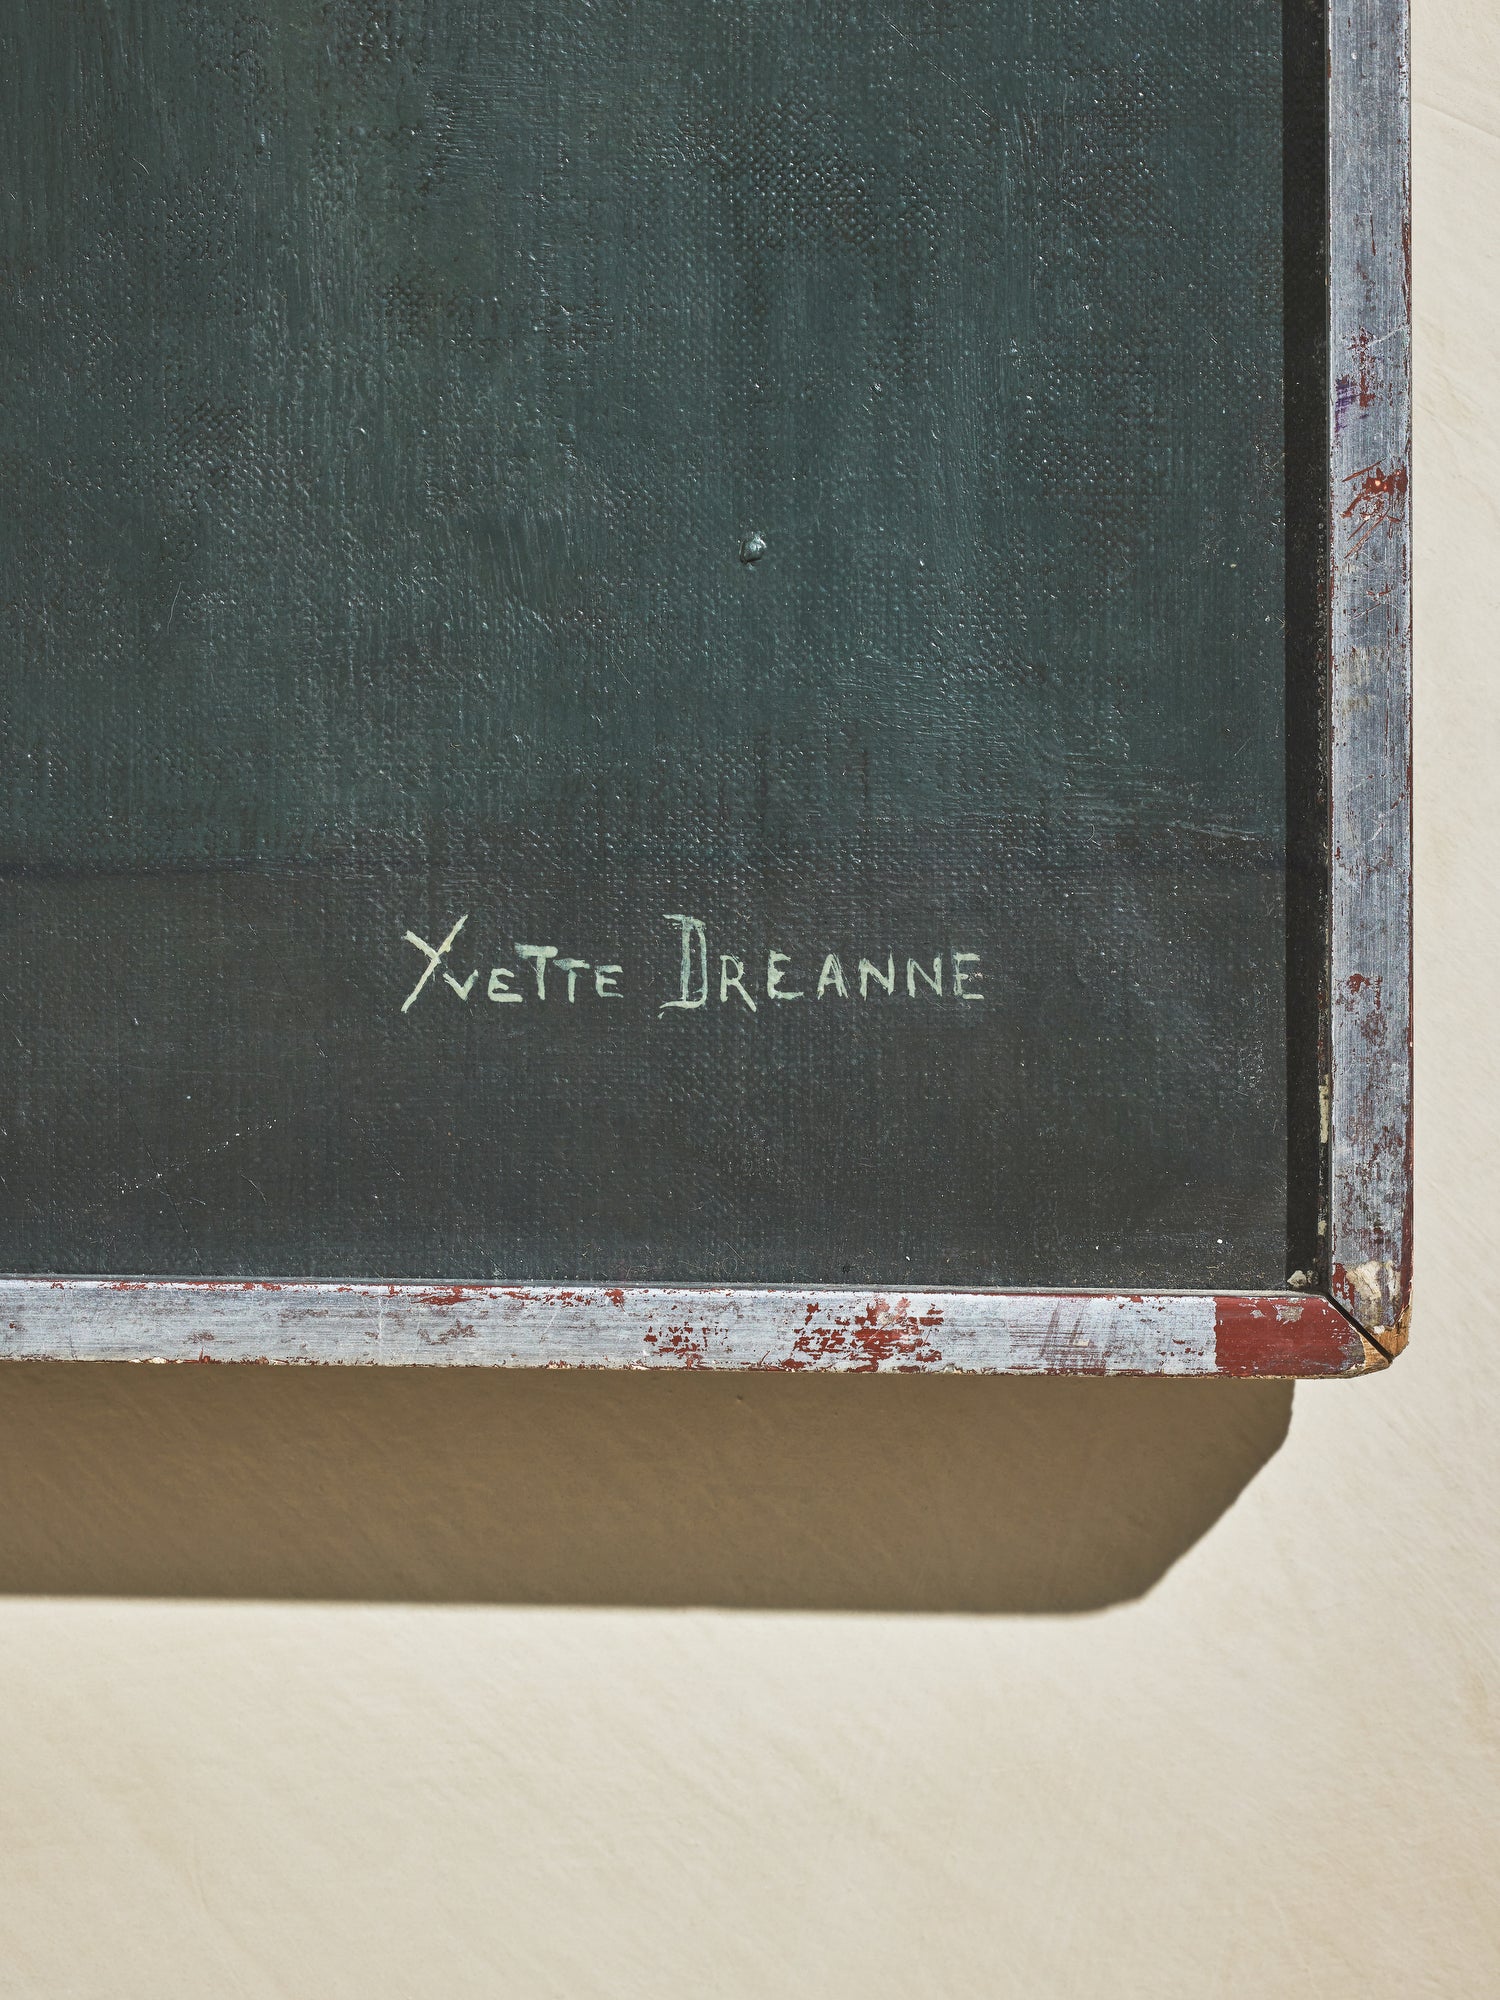 YVETTE DREANNE